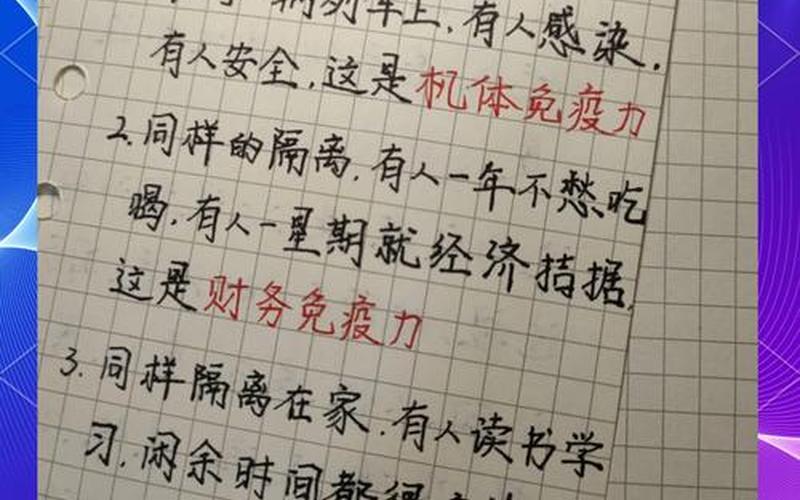 辆列车上,有人感染.
有人安全,这是机体免疫力
2.同样的隔离,有人一年不愁吃
喝,有人一星期就经济拮据,
这是财务免疫力
3.同样隔离在家,有人读书学
习,闲余时间都得